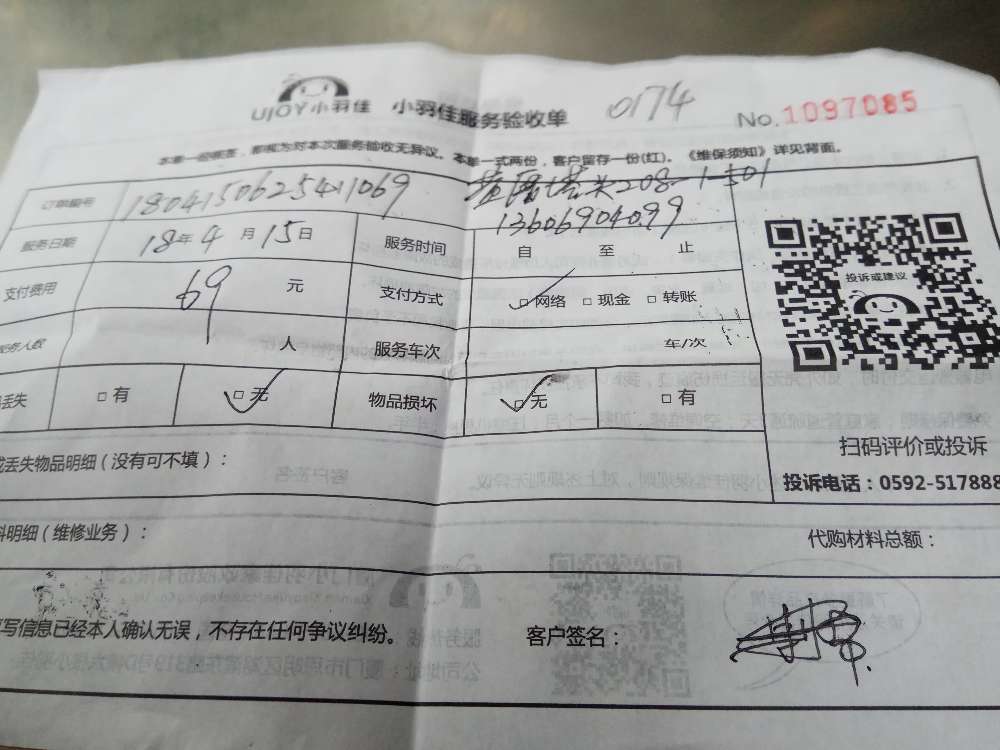 UJOY小羽佳 小羽佳服务验收单 0174 No.1097085
本单一经核签，即视为对本次服务验收无异议。本单一式两份，客户留存一份(红)。《维保须知》详见背面。
订单编号 180415062541069 塔头208-1-501
13606904099
服务日期 18年4月15日 服务时间 自 至 止
支付费用 69 元 支付方式 □网络 □现金 □转账
服务人数 人 服务车次 车/次
丢失 □有 □无 物品损坏 □无 □有
投诉或建议
扫码评价或投诉
丢失物品明细（没有可不填）：
投诉电话：0592-517888
料明细（维修业务）：
代购材料总额：
写信息已经本人确认无误，不存在任何争议纠纷。
客户签名：